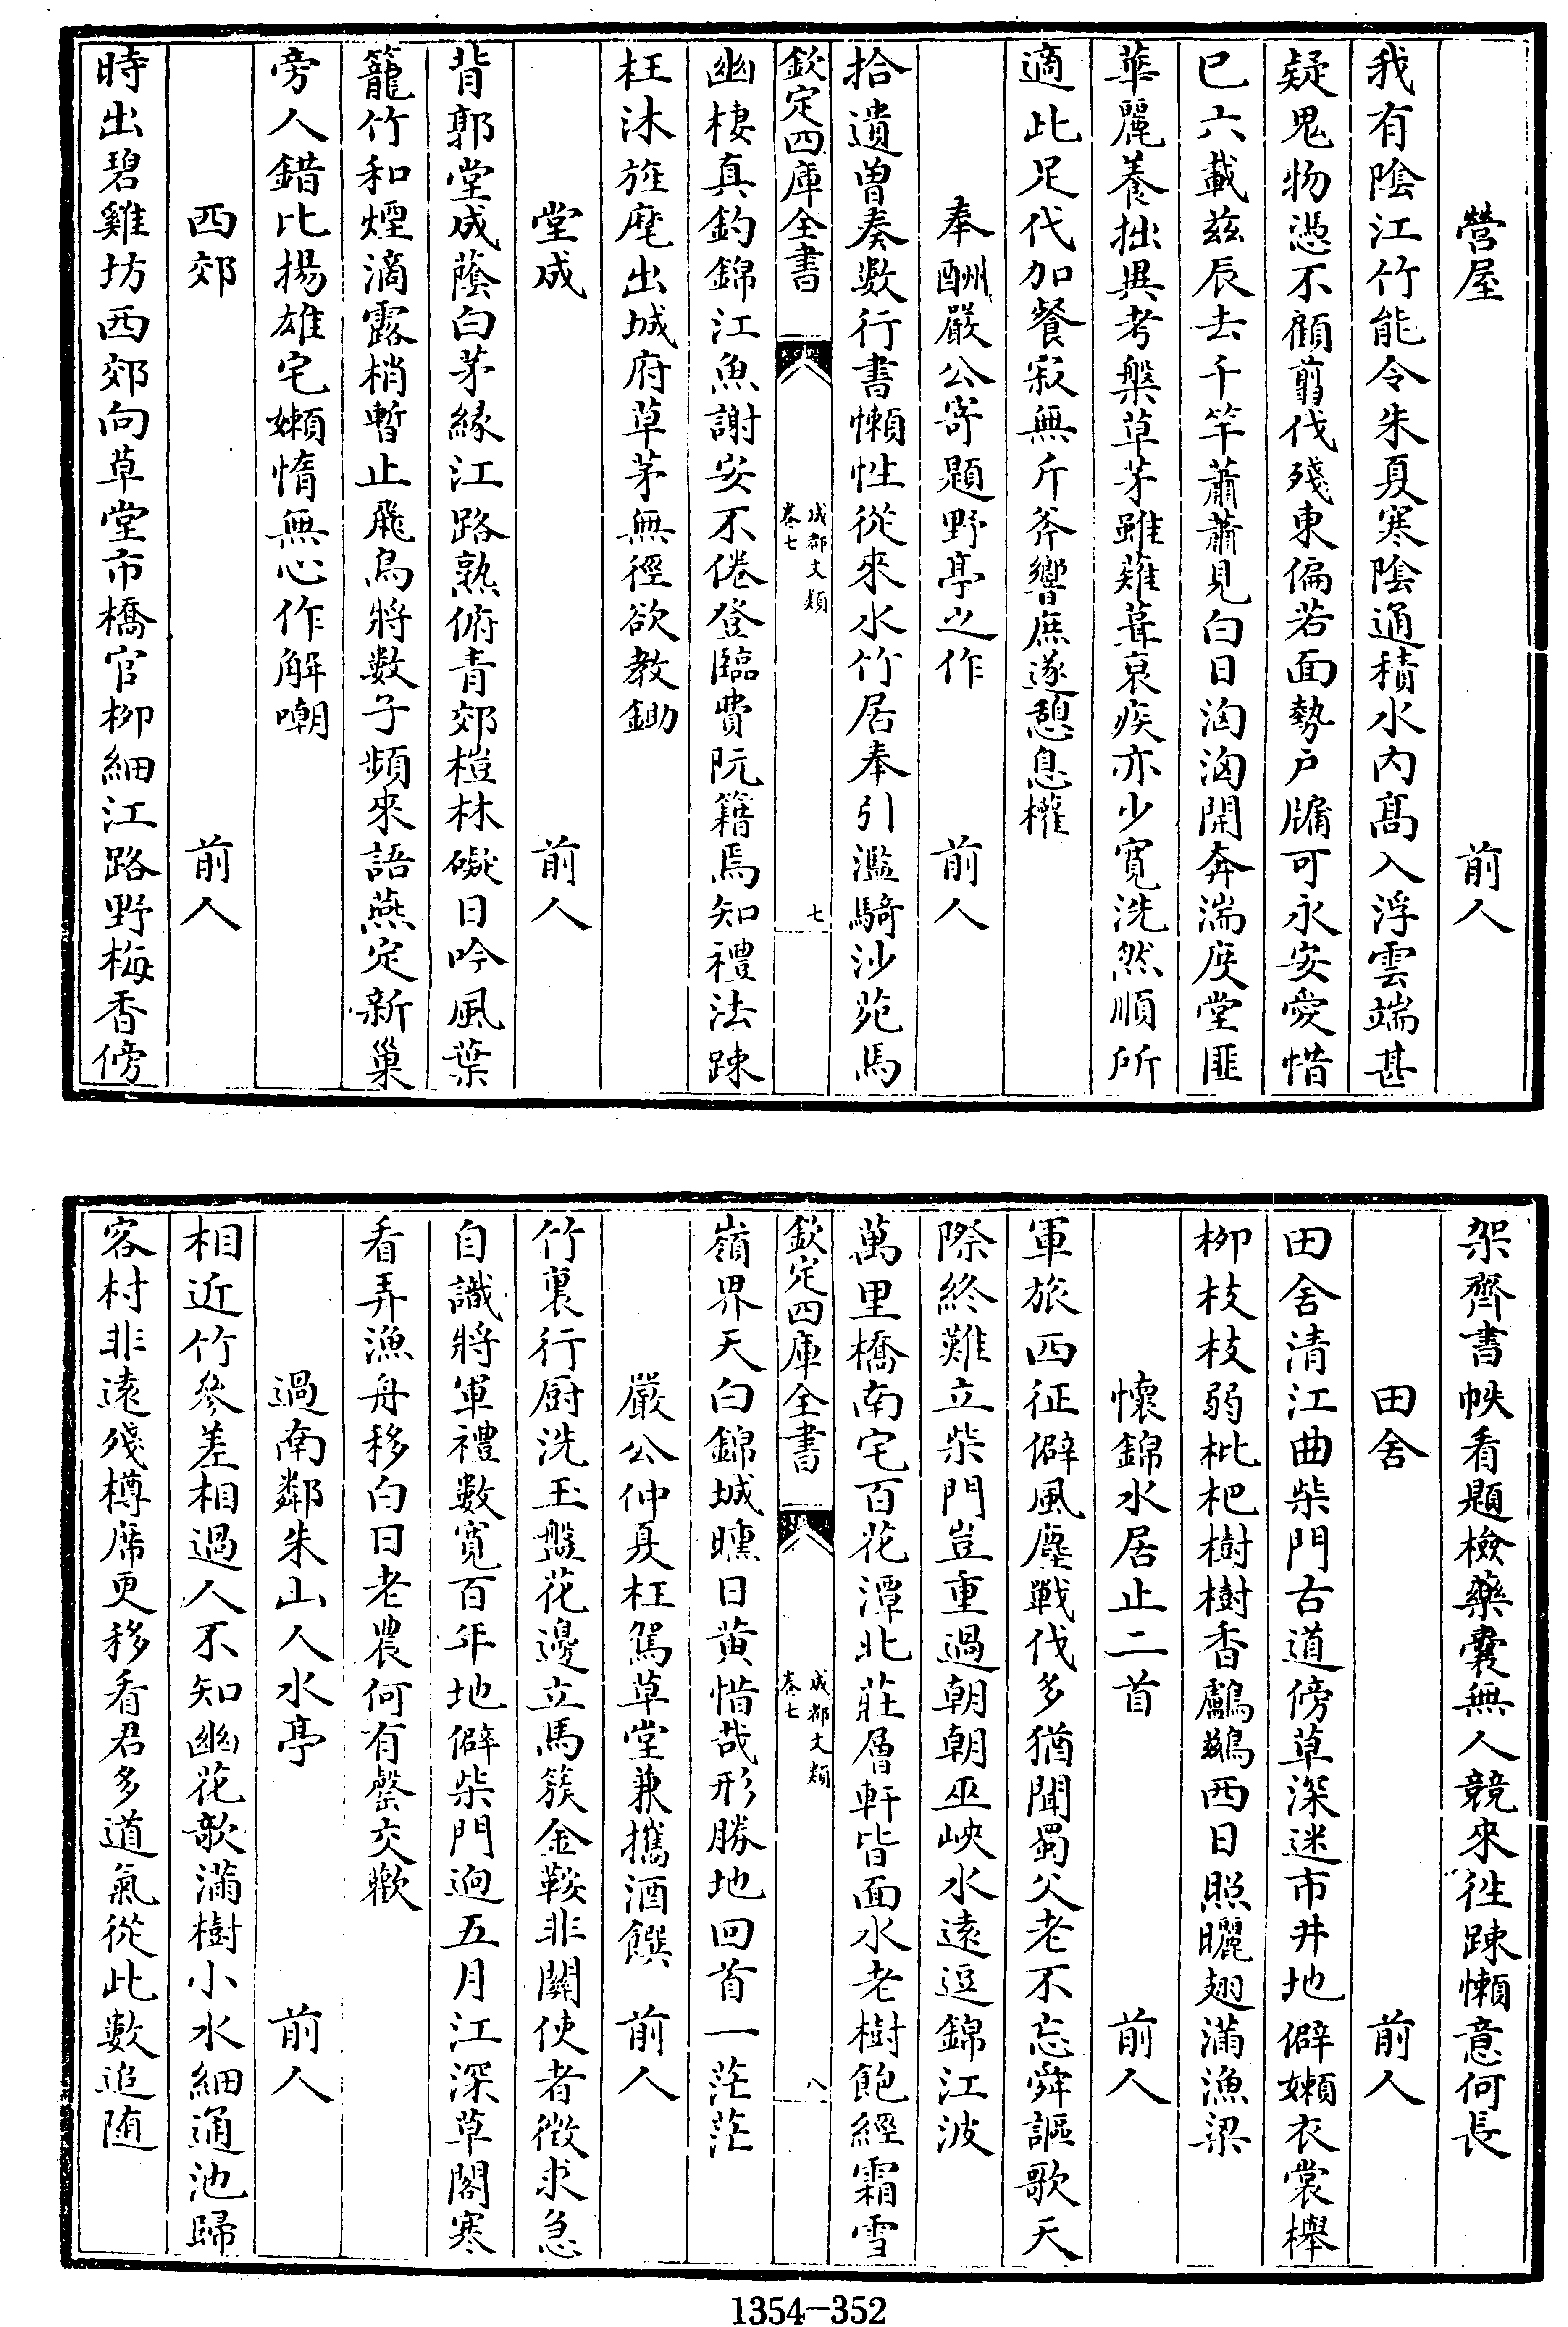 營屋　前人
我有陰江竹能令朱夏寒陰通積水内髙入浮雲端甚
疑鬼物憑不顧翦伐殘東偏若面勢户牖可永安愛惜
已六載兹辰去千竿蕭蕭見白日洶洶開奔湍度堂匪
華麗養拙異考槃草茅雖薙葺衰疾亦少寛洗然順所
適此足代加餐寂無斤斧響庶遂憩息懽
奉酬嚴公寄題野亭之作　前人
拾遺曽奏數行書懶性從來水竹居奉引濫騎沙苑馬
欽定四庫全書
成都文類
卷七
七
幽棲真釣錦江魚謝安不倦登臨費阮籍焉知禮法踈
枉沐旌麾出城府草茅無徑欲教鋤
堂成　前人
背郭堂成䕃白茅緣江路熟俯青郊榿林礙日吟風葉
籠竹和煙滴露梢暫止飛烏將數子頻來語燕定新巢
旁人錯比揚雄宅嬾惰無心作解嘲
西郊　前人
時出碧雞坊西郊向草堂市橋官柳細江路野梅香傍
架齊書帙看題檢藥囊無人競來徃踈懶意何長
田舍　前人
田舍清江曲柴門古道傍草深迷市井地僻嬾衣裳櫸
柳枝枝弱枇杷樹樹香鸕鷀西日照曬翅滿漁梁
懷錦水居止二首　前人
軍旅西征僻風塵戰伐多猶聞蜀父老不忘舜謳歌天
際終難立柴門豈重過朝朝巫峽水遠逗錦江波
萬里橋南宅百花潭北莊層軒皆面水老樹飽經霜雪
欽定四庫全書
成都文類
卷七
八
嶺界天白錦城曛日黄惜哉形勝地回首一茫茫
嚴公仲夏枉駕草堂兼攜酒饌　前人
竹裏行厨洗玉盤花邊立馬簇金鞍非關使者徴求急
自識將軍禮數寛百年地僻柴門迥五月江深草閣寒
看弄漁舟移白日老農何有罄交歡
過南鄰朱山人水亭　前人
相近竹參差相過人不知幽花欹滿樹小水細通池歸
客村非遠殘樽席更移看君多道氣從此數追随
1354－352